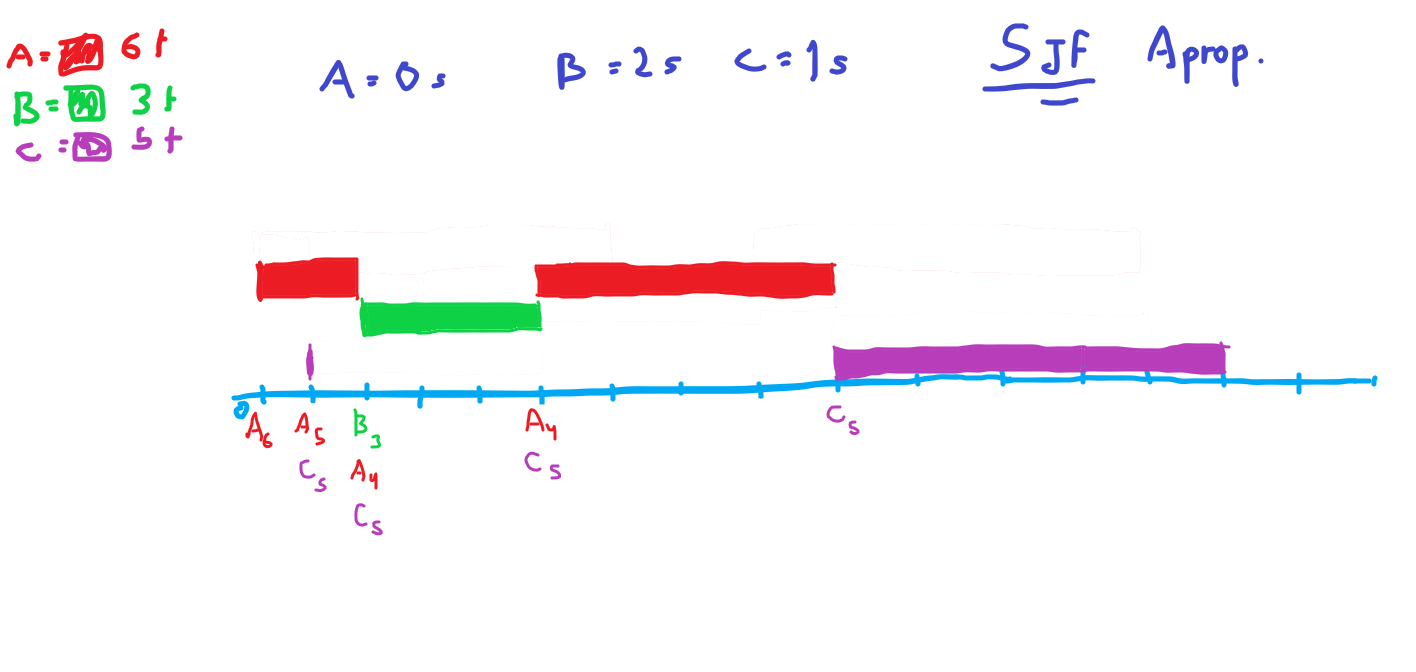 A = 6 t
B = 3 t
C = 5 t
A = 0 s B = 2 s C = 1 s SJF Aprop.
0
A6 A5 B3 A4 C5
C5 A4 C5
C5